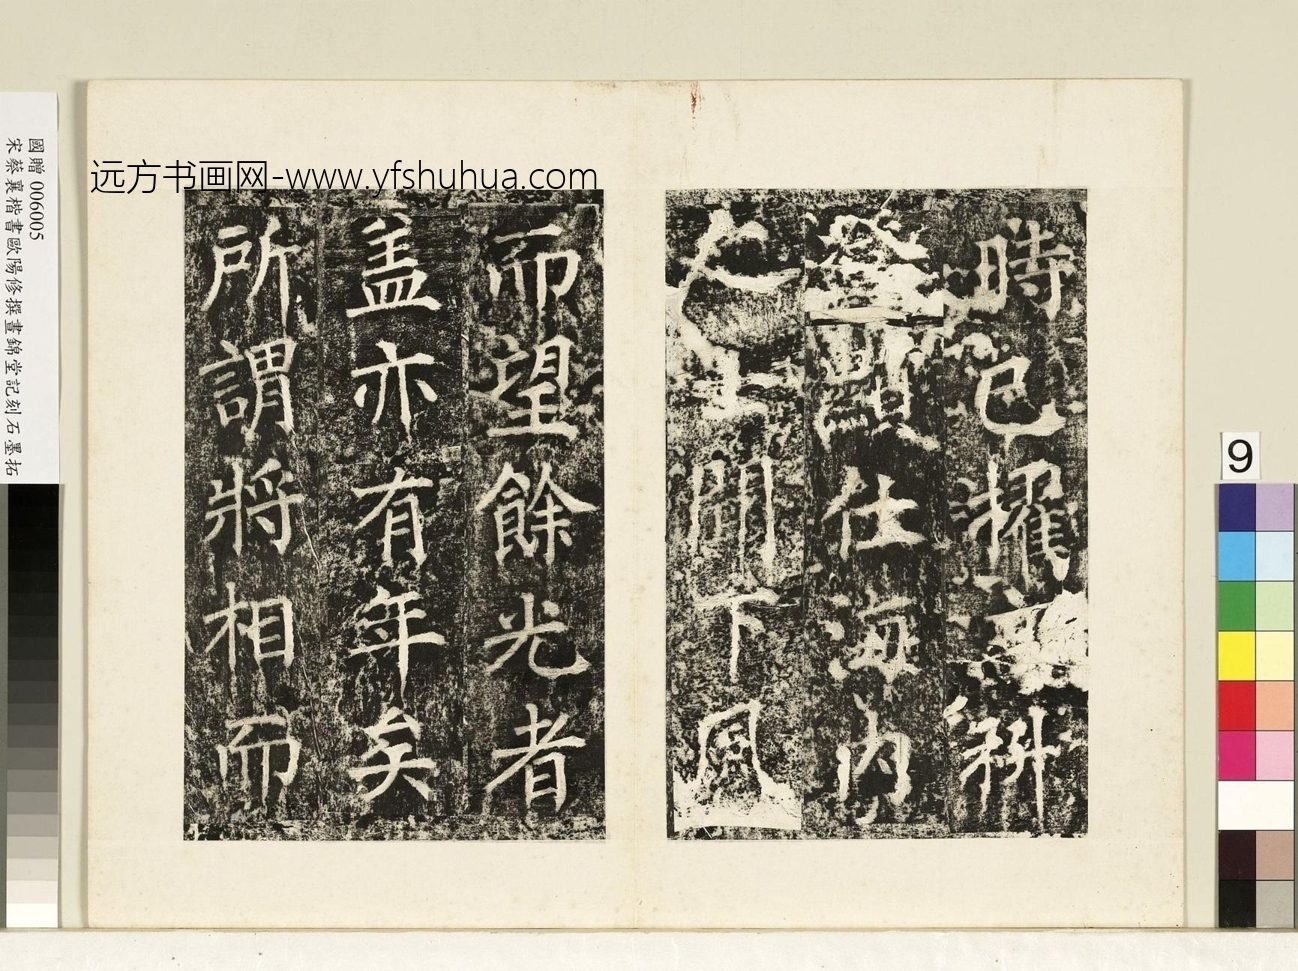 國贈006005
宋蔡襄楷書歐陽修撰晝錦堂記刻石墨拓
远方书画网-www.yfshuhua.com
時已擢科
登顯仕海內
之士聞下風
而望餘光者
蓋亦有年矣
所謂將相而
9